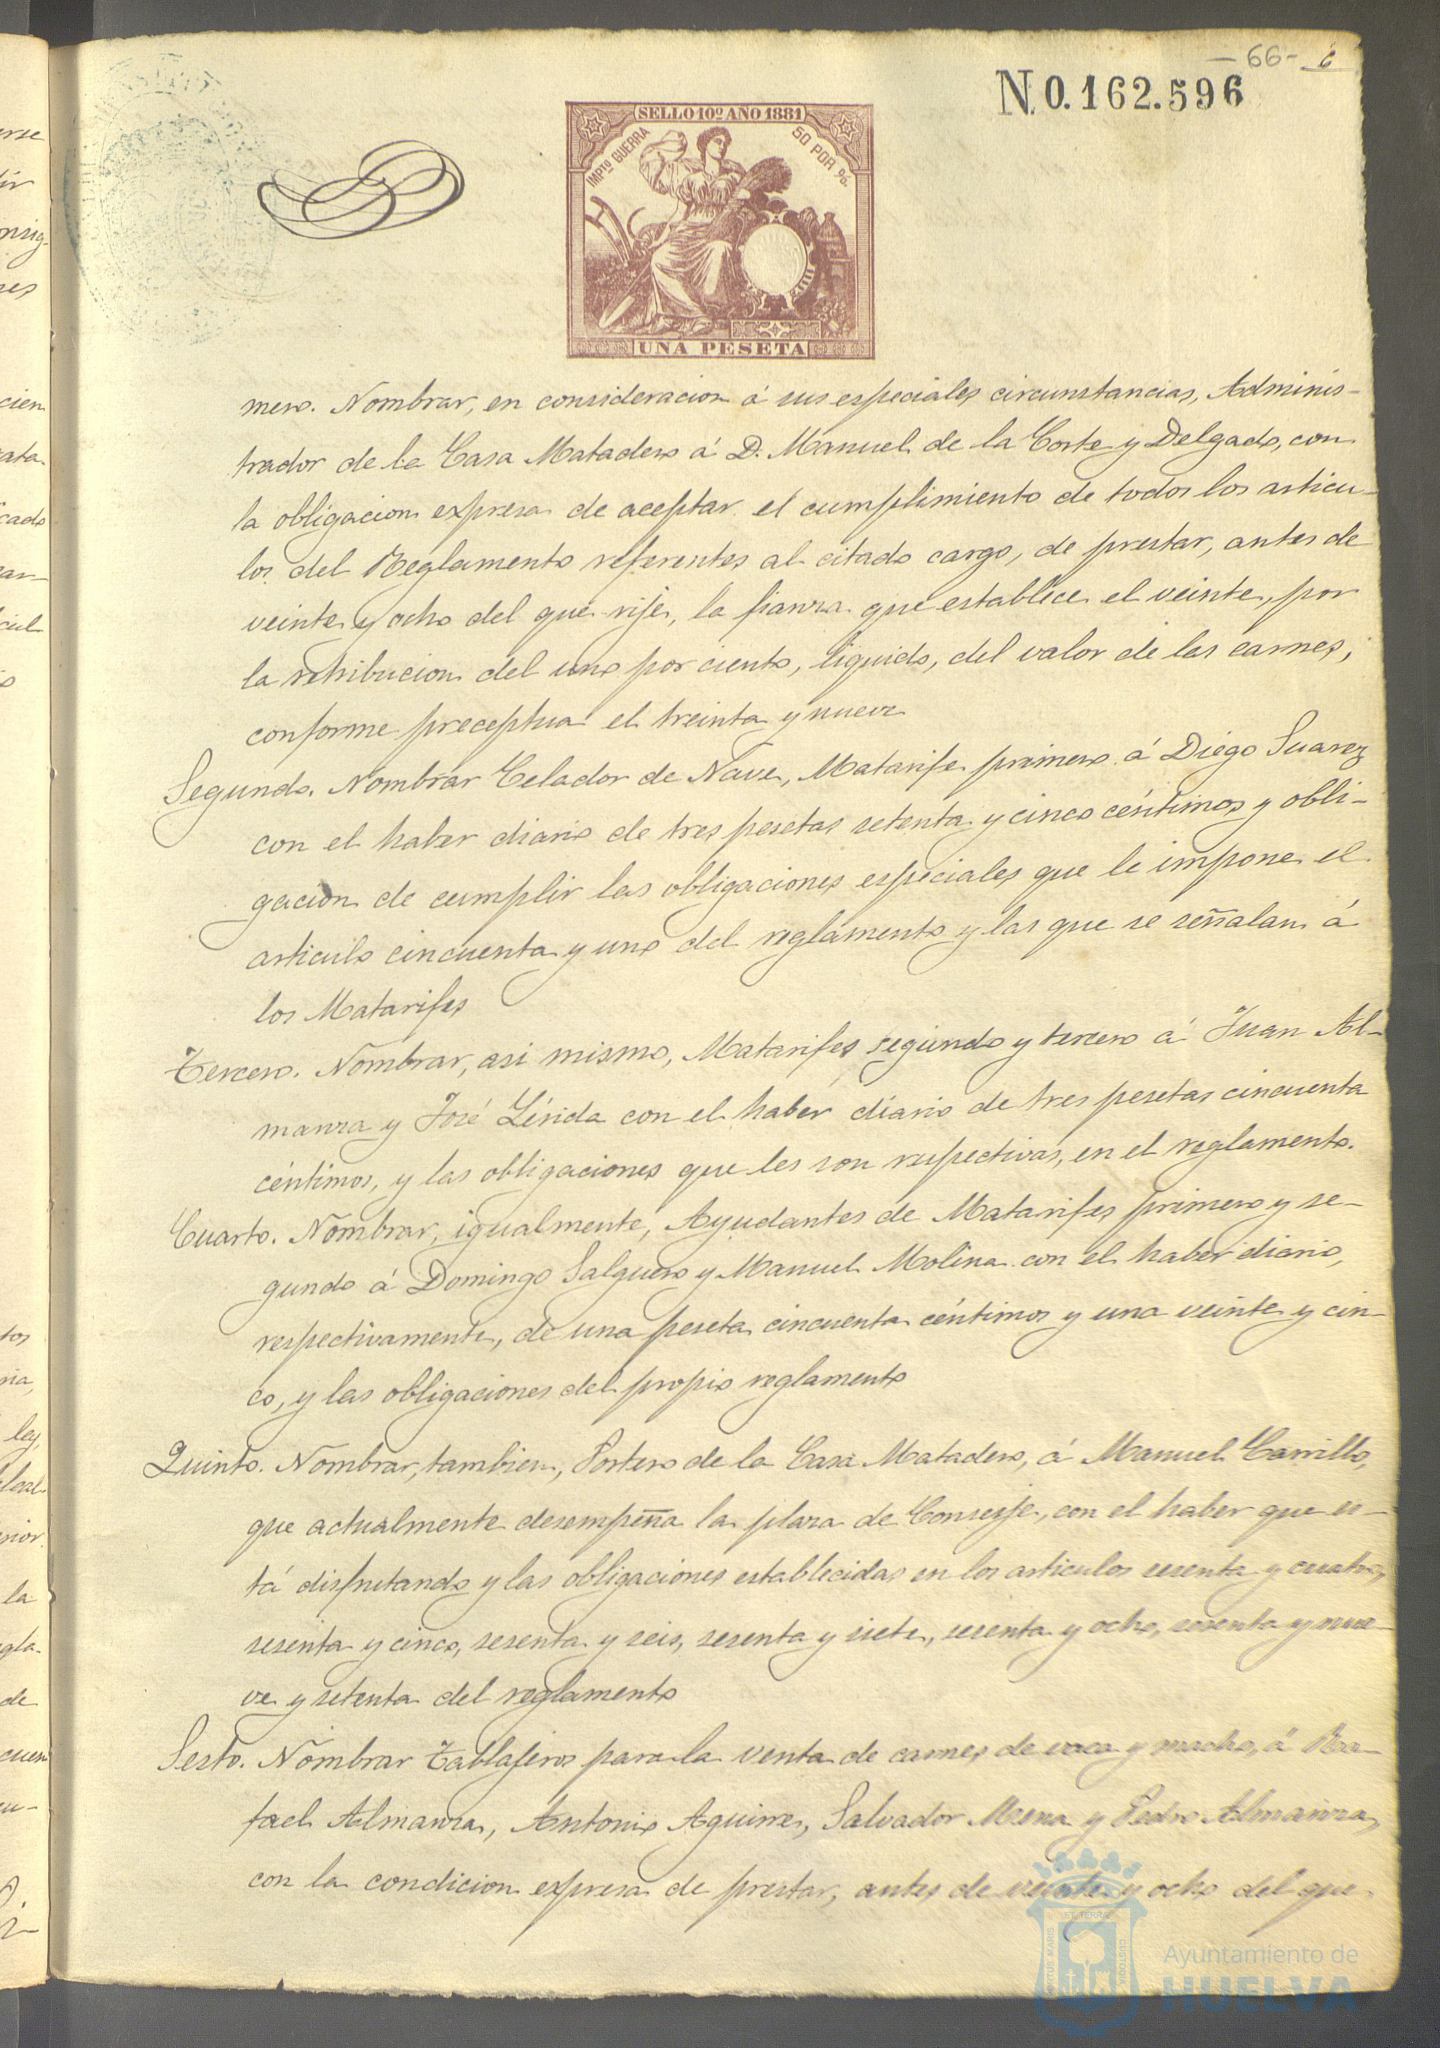 - 66 - 6
N. 0.162.596
SELLO 10º AÑO 1881
IMPTO GUERRA
50 POR %.
UNA PESETA
mero. Nombrar, en consideracion á sus especiales circunstancias, Adminis-
trador de la Casa Matadero á D. Manuel de la Corte y Delgado, con
la obligacion expresa de aceptar el cumplimiento de todos los articu-
los del Reglamento referentes al citado cargo, de prestar, antes de
veinte y ocho del que rije, la fianza que establece el veinte, por
la retribucion del uno por ciento, liquido, del valor de las carnes,
conforme preceptua el treinta y nueve
Segundo. Nombrar Celador de Nave, Matarife primero á Diego Suarez
con el haber diario de tres pesetas setenta y cinco céntimos y obli-
gacion de cumplir las obligaciones especiales que le impone el
articulo cincuenta y uno del reglamento y las que se señalan á
los Matarifes
Tercero. Nombrar, asi mismo, Matarifes segundo y tercero á Juan Al-
manza y José Lérida con el haber diario de tres pesetas cincuenta
céntimos, y las obligaciones que les son respectivas, en el reglamento.
Cuarto. Nombrar, igualmente, Ayudantes de Matarifes primero y se-
gundo á Domingo Salguero y Manuel Molina con el haber diario,
respectivamente, de una peseta cincuenta céntimos y una veinte y cin-
co, y las obligaciones del propio reglamento
Quinto. Nombrar, tambien, Portero de la Casa Matadero, á Manuel Carrillo,
que actualmente desempeña la plaza de Conserje, con el haber que es-
tá disfrutando y las obligaciones establecidas en los articulos sesenta y cuatro,
sesenta y cinco, sesenta y seis, sesenta y siete, sesenta y ocho, sesenta y nue-
ve y setenta del reglamento
Sesto. Nombrar Tablajeros para la venta de carnes de vaca y macho, á Ra-
fael Almanza, Antonio Aguirre, Salvador Mena y Pedro Almanza,
con la condicion expresa de prestar, antes de veinte y ocho del que
Ayuntamiento de
HUELVA